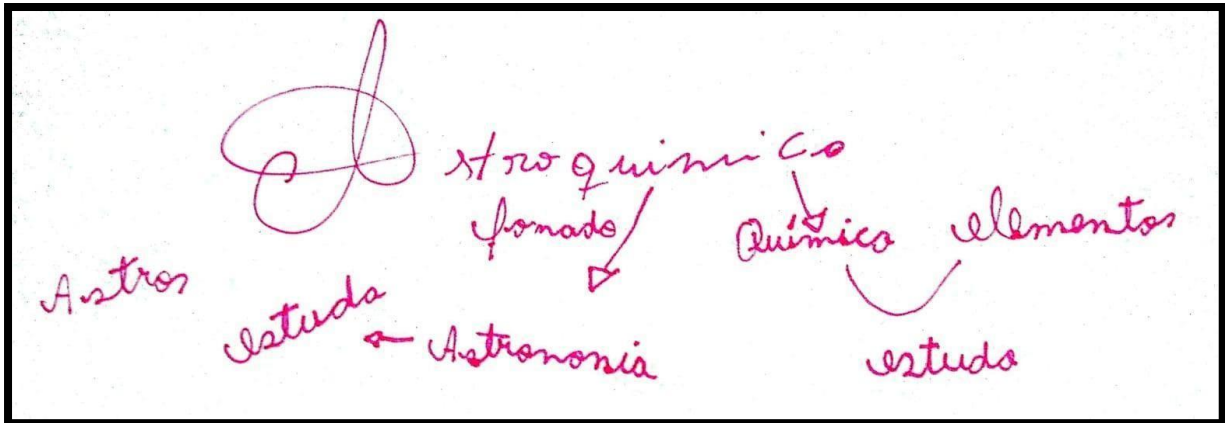 Astroquimica
fomado
Química elementos
Astros
estuda
Astronomia
estuda